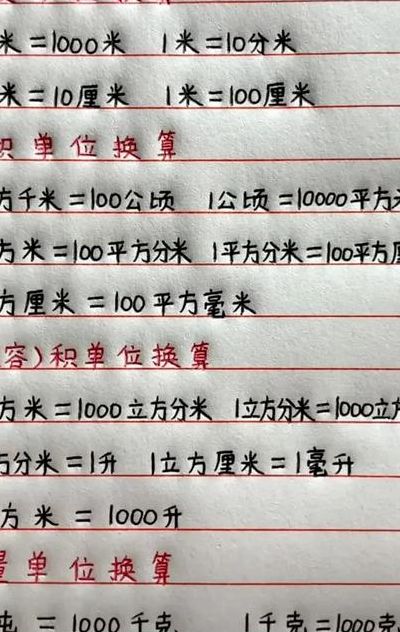 米=1000米 1米=10分米
米=10厘米 1米=100厘米
积单位换算
方千米=100公顷 1公顷=10000平方米
方米=100平方分米 1平方分米=100平方厘
方厘米=100平方毫米
容)积单位换算
方米=1000立方分米 1立方分米=1000立方
方分米=1升 1立方厘米=1毫升
方米=1000升
量单位换算
吨=1000千克 1千克=1000克